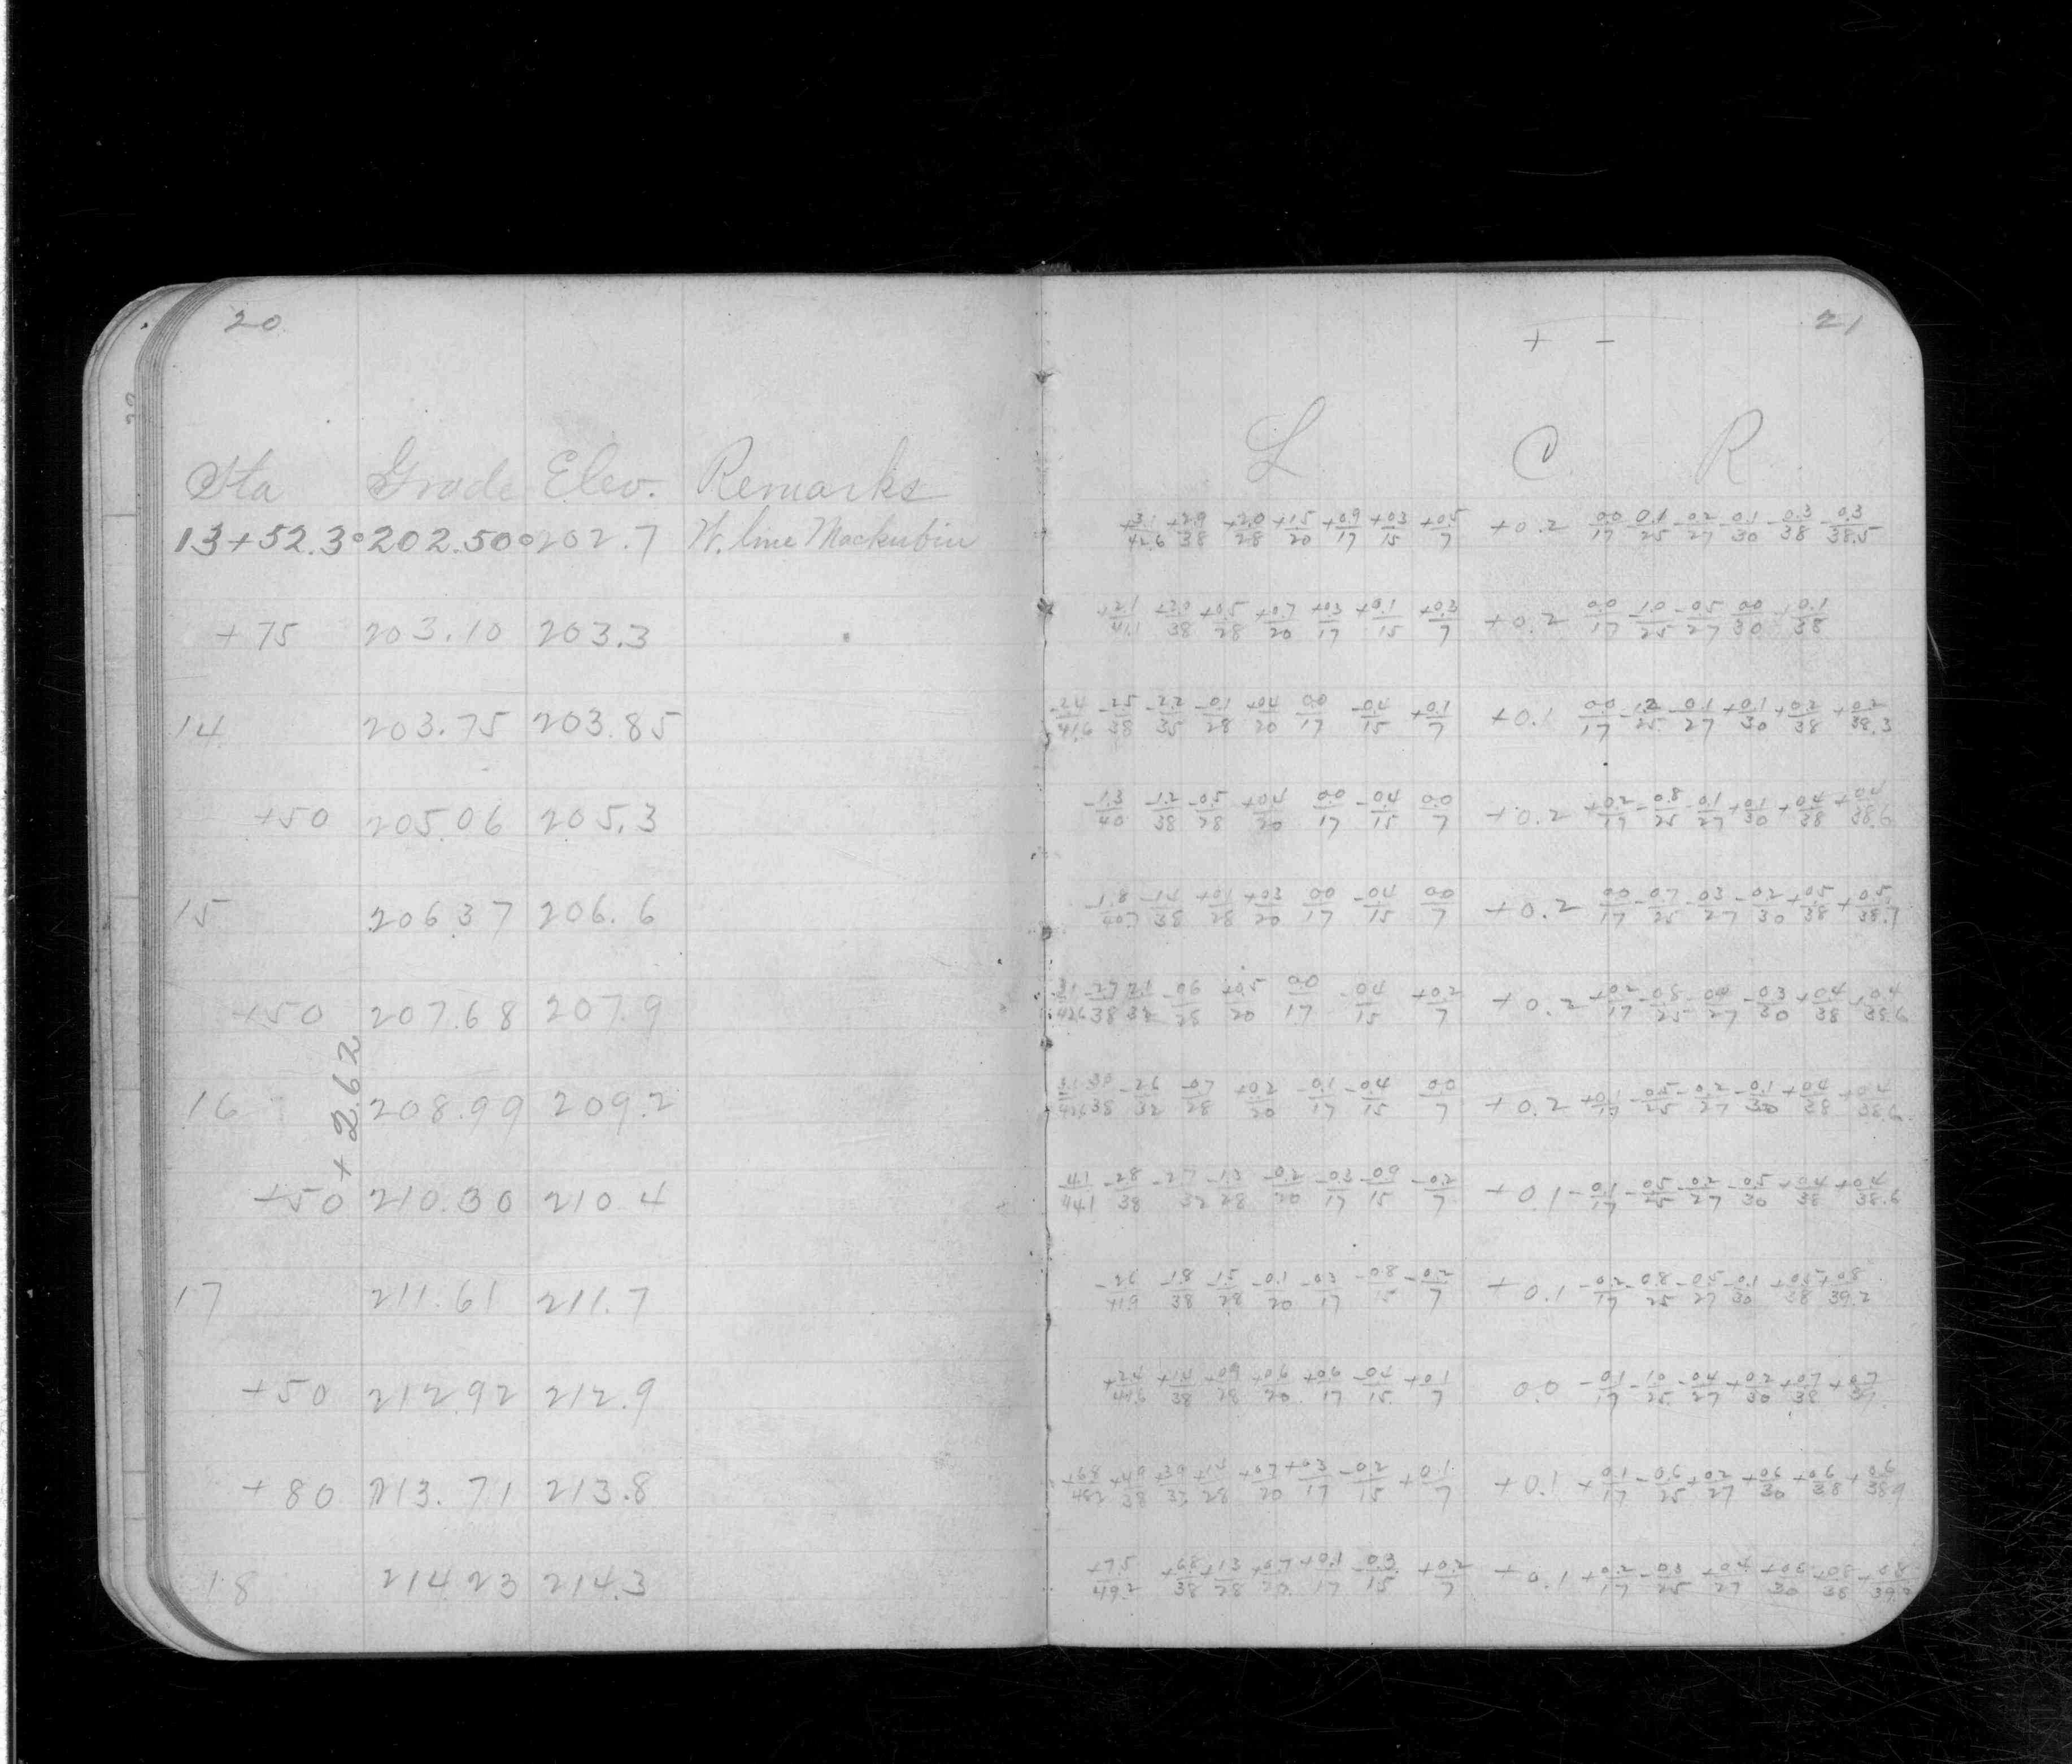 20
Sta Grade Elev. Remarks
13+52.3 202.50 202.7 W. line Mackubin
+75 203.10 203.3
14 203.75 203.85
+50 205.06 205.3
15 206.37 206.6
+50 207.68 207.9
+2.62
16 208.99 209.2
+50 210.30 210.4
17 211.61 211.7
+50 212.92 212.9
+80 213.71 213.8
18 214.23 214.3
21
+ -
L C R
+3.1/42.6 +2.9/38 +2.0/28 +1.5/20 +0.9/17 +0.3/15 +0.5/7 +0.2 0.0/17 0.1/25 -0.2/27 -0.1/30 -0.3/38 -0.3/38.5
+2.1/41.1 +2.0/38 +0.5/28 +0.7/20 +0.3/17 +0.1/15 +0.3/7 +0.2 0.0/17 -1.0/25 -0.5/27 0.0/30 0.1/38
-2.4/41.6 -2.5/38 -2.2/35 -0.1/28 +0.4/20 0.0/17 -0.4/15 +0.1/7 +0.1 0.0/17 -1.2/25 -0.1/27 +0.1/30 +0.2/38 +0.2/38.3
-1.3/40 -1.2/38 -0.5/28 +0.4/20 0.0/17 -0.4/15 0.0/7 +0.2 +0.2/17 -0.8/25 -0.1/27 +0.1/30 +0.4/38 +0.4/38.6
-1.8/40.7 +0.1/28 +0.3/20 0.0/17 -0.4/15 0.0/7 +0.2 0.0/17 -0.7/25 -0.3/27 -0.2/30 +0.5/38 +0.5/38.7
3.1/42.6 -2.7/38 -0.6/28 +0.5/20 0.0/17 -0.4/15 +0.2/7 +0.2 +0.2/17 -0.8/25 -0.3/30 +0.4/38 +0.4/38.6
3.1/42.6 3.0/38 -2.6/32 -0.7/28 +0.2/20 -0.1/17 -0.4/15 0.0/7 +0.2 +0.1/17 -0.5/25 -0.2/27 -0.1/30 +0.4/38 +0.4/38.6
-4.1/44.1 -2.8/38 -2.7/32 -1.3/28 -0.2/20 -0.3/17 -0.9/15 -0.2/7 +0.1 -0.1/17 -0.5/25 -0.2/27 -0.5/30 +0.4/38 +0.4/38.6
-2.6/41.9 -1.8/38 -1.5/28 -0.1/20 -0.3/17 -0.8/15 -0.2/7 +0.1 -0.2/17 -0.8/25 -0.5/27 -0.1/30 +0.8/39.2
+2.4/41.6 +1.4/38 +0.9/28 +0.6/20 +0.6/17 -0.4/15 +0.1/7 0.0 -0.1/17 -1.0/25 -0.4/27 +0.2/30 +0.7/38 +0.7/39
+6.8/48.2 +4.9/38 +1.4/28 +0.7/20 +0.3/17 -0.2/15 +0.1/7 +0.1 +0.1/17 -0.6/25 +0.2/27 +0.6/30 +0.6/38 +0.6/38.9
+7.5/49.2 +6.8/38 +1.3/28 +0.7/20 +0.1/17 -0.3/15 +0.2/7 +0.1 +0.2/17 -0.3/25 +0.4/27 +0.6/30 +0.8/38 +0.8/39.2